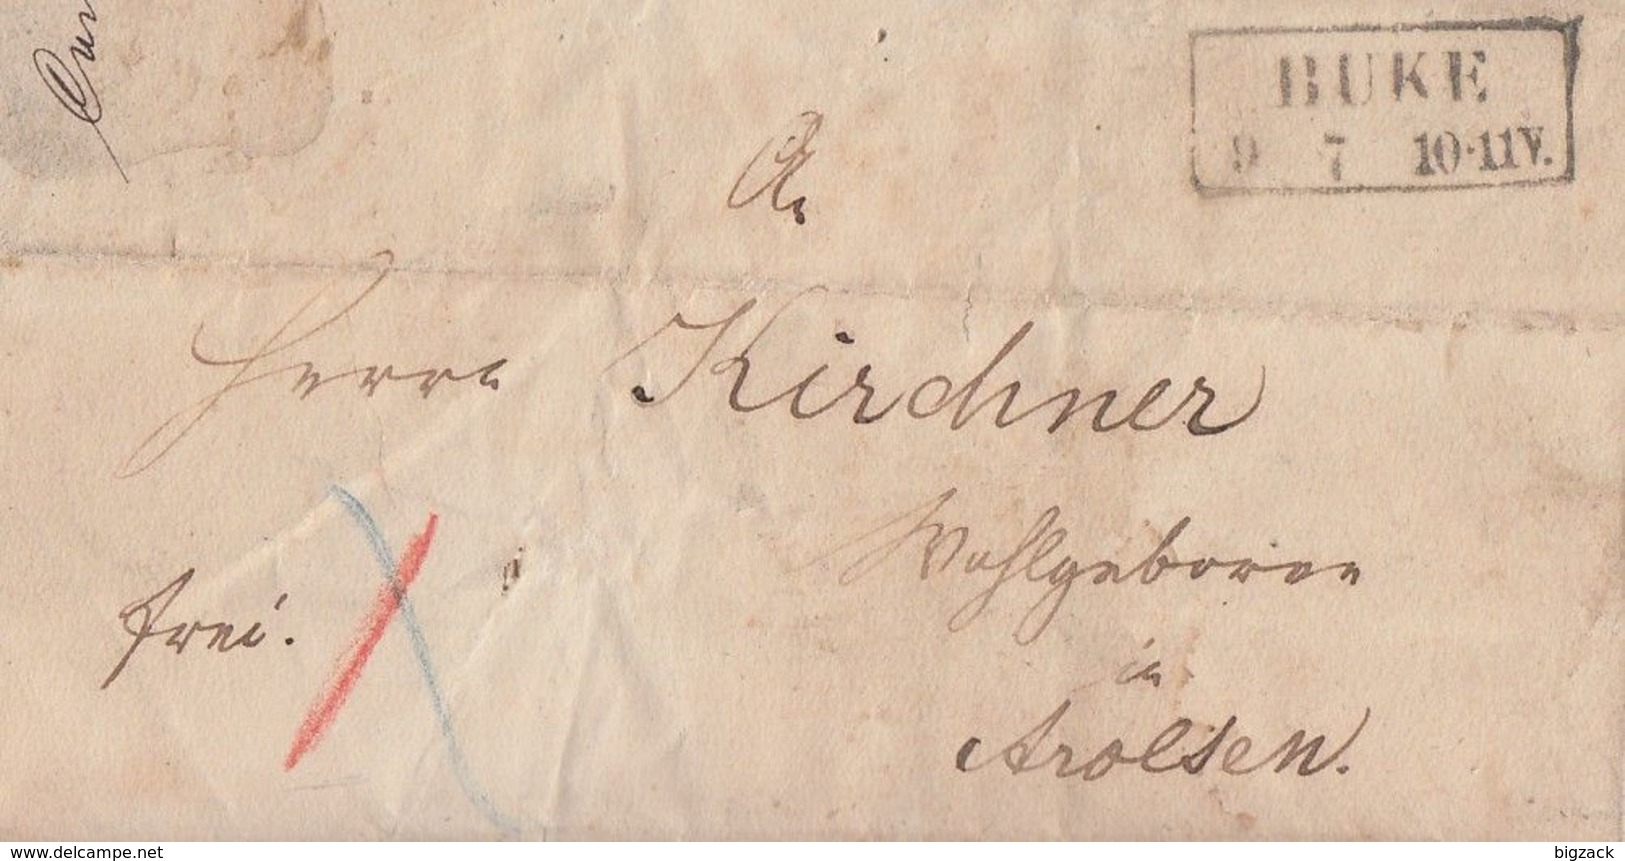 BUKE
9 7 10-11V.
An
Herrn Kirchner
Wohlgeboren
frei.
in
Arolsen.
www.delcampe.net
bigzack